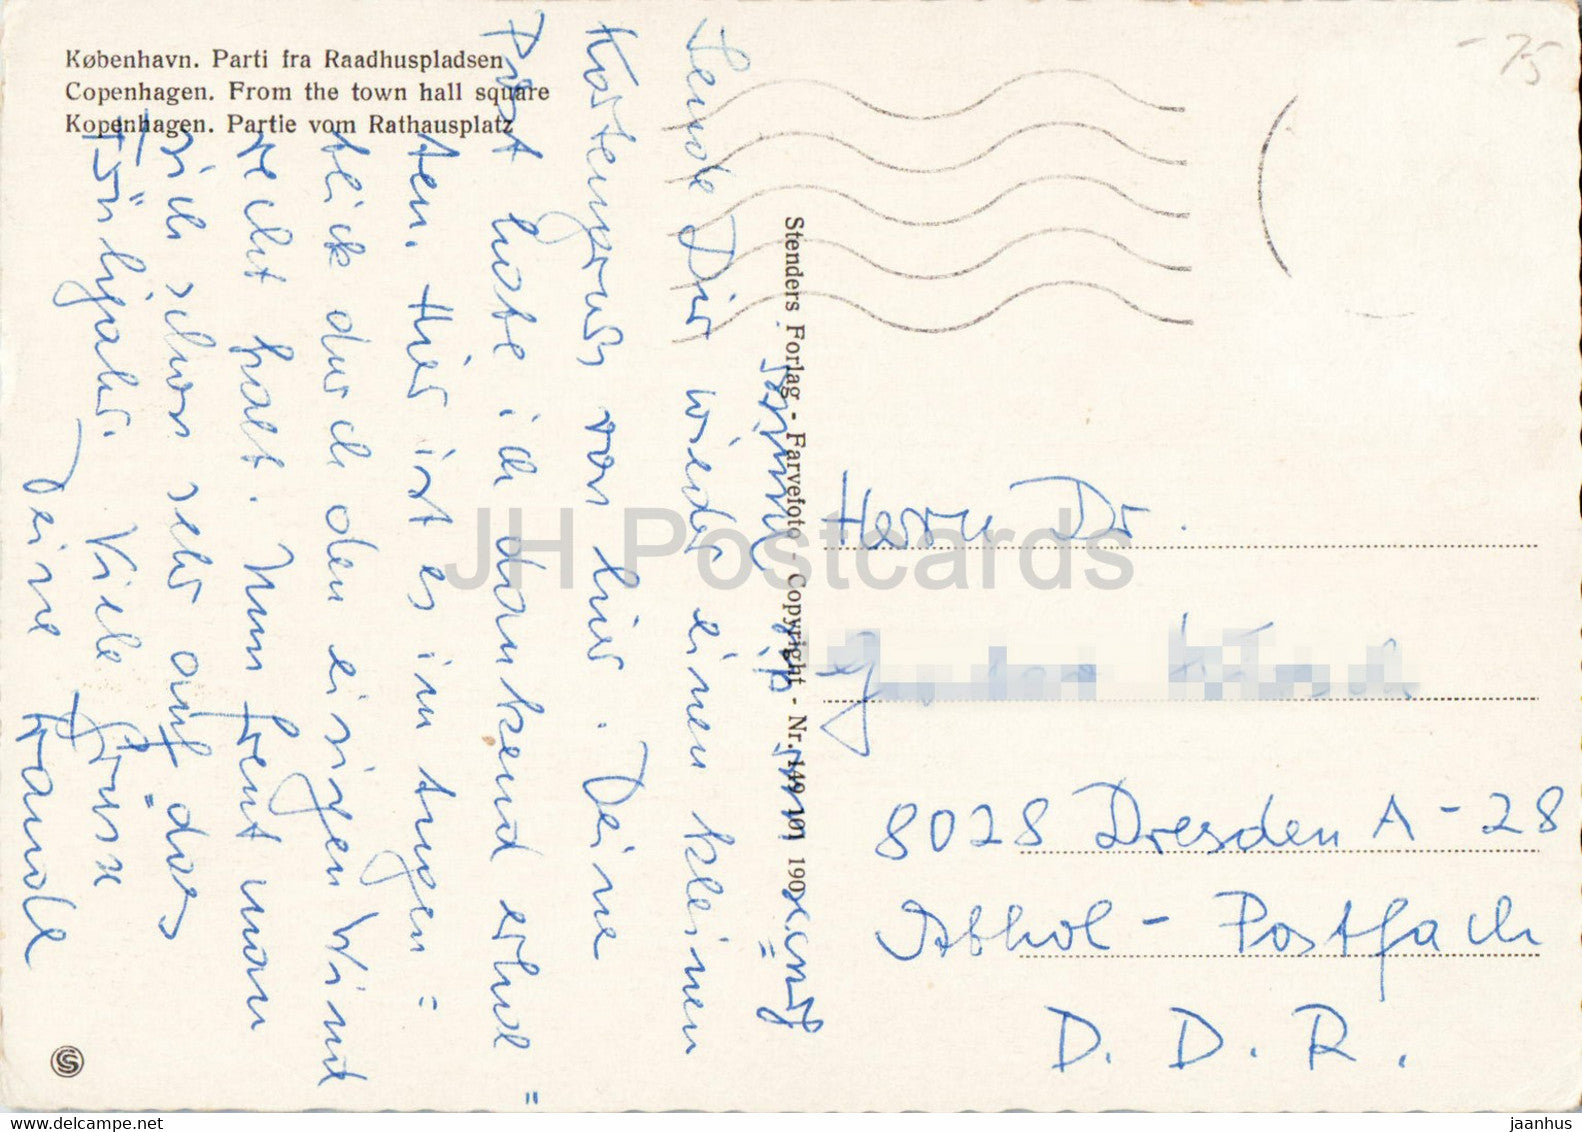 København. Parti fra Raadhuspladsen
Copenhagen. From the town hall square
Kopenhagen. Partie vom Rathausplatz
- 75
Stenders Forlag - Farvefoto - Copyright - Nr. 149 101 190
Sende Dir wieder einen kleinen
Kartengruss von hier. Deine
Post habe ich dankend erhal=
ten. Hier ist es im Augen=
blick durch den eisigen Wind
recht kalt. Nun freut man
sich schon sehr auf das
Frühjahr. Viele Grüsse
Deine Traudl
Herrn Dr.
8028 Dresden A-28
Abhol-Postfach
D. D. R.
JH Postcards
www.delcampe.net
jaanhus